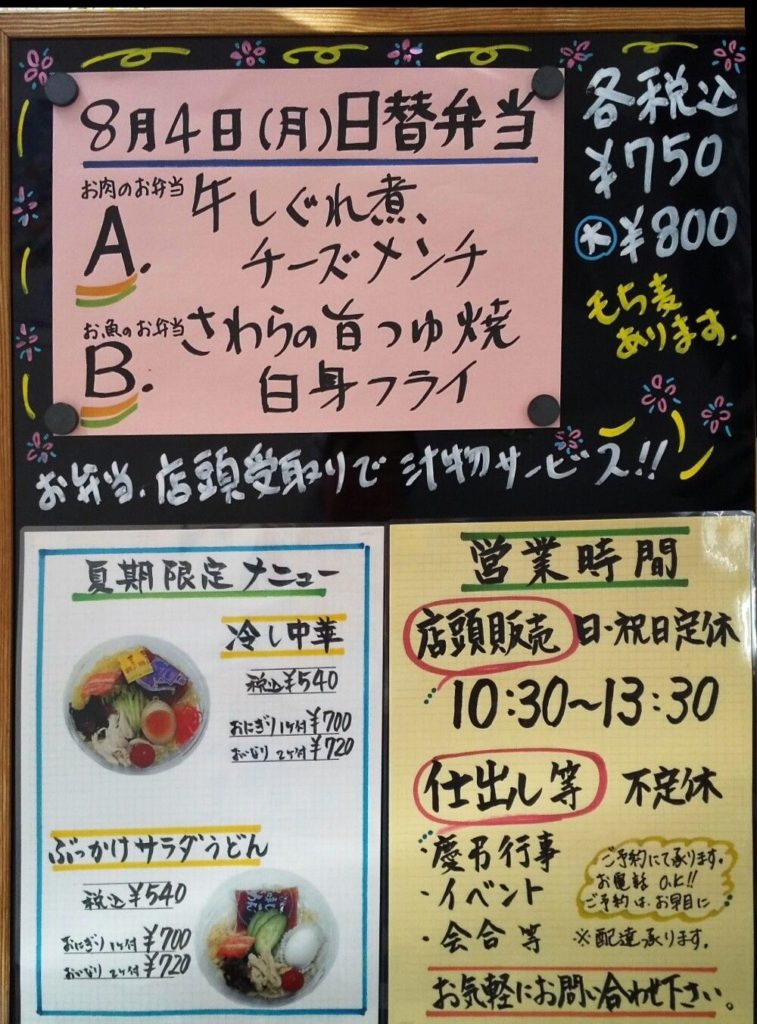 8月4日(月)日替弁当
お肉のお弁当
A.
牛しぐれ煮、
チーズメンチ
お魚のお弁当
B.
さわらの旨つゆ焼
白身フライ
各税込
¥750
大 ¥800
もち麦
あります.
お弁当、店頭受取りで 汁物サービス!!
夏期限定メニュー
冷し中華
税込¥540
おにぎり1ケ付¥700
おいなり 2ケ付¥720
ぶっかけサラダうどん
税込¥540
おにぎり1ケ付¥700
おいなり 2ケ付¥720
営業時間
店頭販売 日・祝日定休
10:30~13:30
仕出し等 不定休
・慶弔行事
・イベント
・会合等
ご予約にて承ります。
お電話 O.K!!
ご予約は、お早目に
※配達承ります.
お気軽にお問い合わせ下さい。